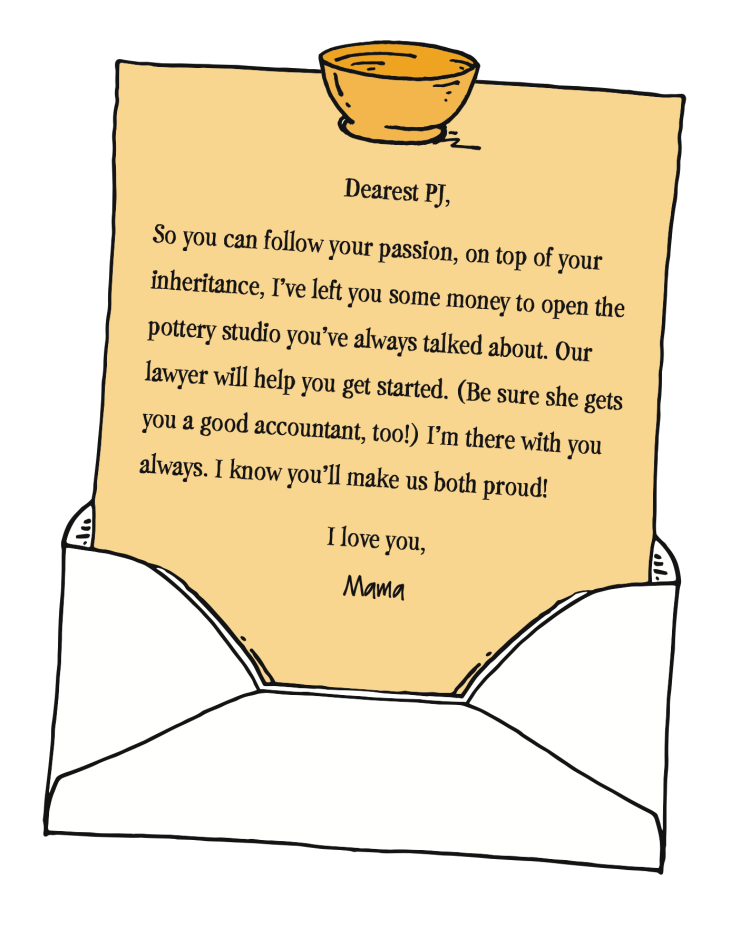 Dearest PJ,
So you can follow your passion, on top of your
inheritance, I've left you some money to open the
pottery studio you've always talked about. Our
lawyer will help you get started. (Be sure she gets
you a good accountant, too!) I'm there with you
always. I know you'll make us both proud!
I love you,
Mama